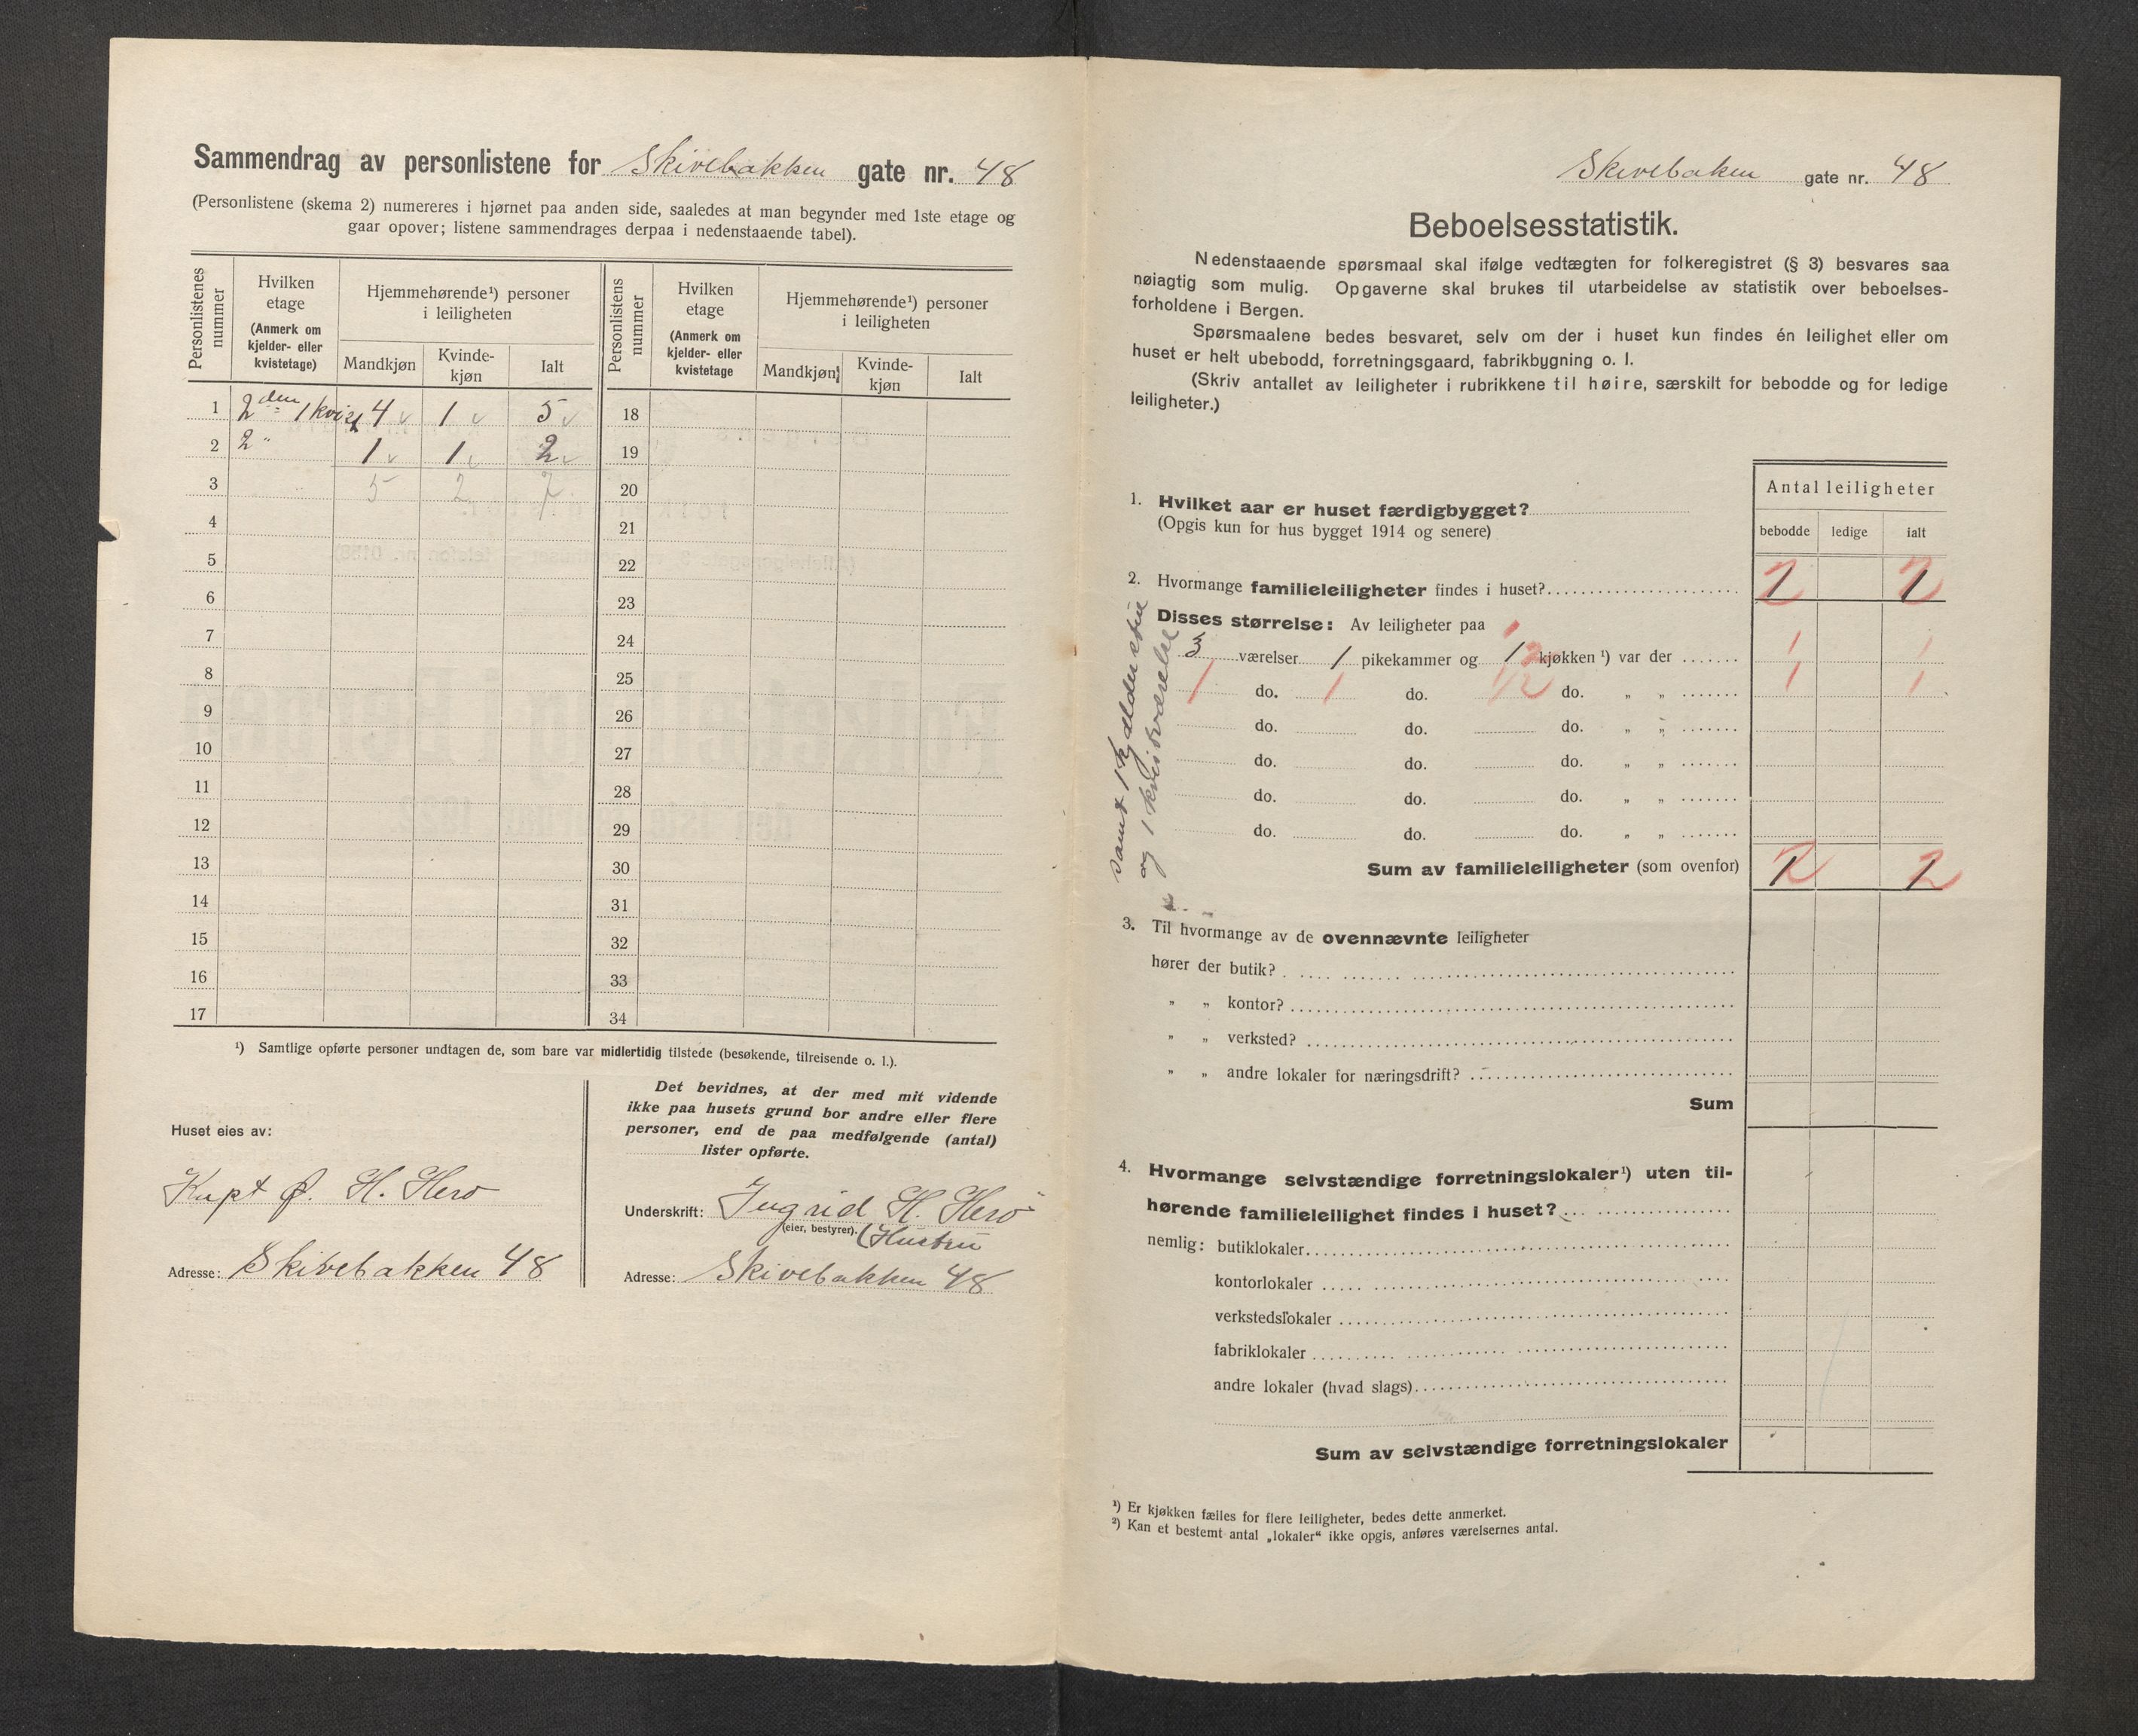 Sammendrag av personlistene for Skivebakken gate nr. 48
(Personlistene (skema 2) numereres i hjørnet paa anden side, saaledes at man begynder med 1ste etage og
gaar opover; listene sammendrages derpaa i nedenstaaende tabel).
Personlistenes nummer | Hvilken etage (Anmerk om kjelder- eller kvistetage) | Hjemmehørende¹) personer i leiligheten | Personlistens nummer | Hvilken etage (Anmerk om kjelder- eller kvistetage | Hjemmehørende¹) personer i leiligheten
Mandkjøn | Kvinde-kjøn | Ialt | Mandkjøn | Kvinde-kjøn | Ialt
1 2den 1 kvist 4 1 5 18
2 2 " 1 1 2 19
3 5 2 7 20
4 21
5 22
6 23
7 24
8 25
9 26
10 27
11 28
12 29
13 30
14 31
15 32
16 33
17 34
¹) Samtlige opførte personer undtagen de, som bare var midlertidig tilstede (besøkende, tilreisende o. l.).
Huset eies av:
Kapt Ø. H. Herø
Adresse: Skivebakken 48
Det bevidnes, at der med mit vidende
ikke paa husets grund bor andre eller flere
personer, end de paa medfølgende (antal)
lister opførte.
Underskrift: Ingrid H. Herø
(eier, bestyrer). (Hustru
Adresse: Skivebakken 48
Skivebaken gate nr. 48
Beboelsesstatistik.
Nedenstaaende spørsmaal skal ifølge vedtægten for folkeregistret (§ 3) besvares saa
nøiagtig som mulig. Opgaverne skal brukes til utarbeidelse av statistik over beboelses-
forholdene i Bergen.
Spørsmaalene bedes besvaret, selv om der i huset kun findes én leilighet eller om
huset er helt ubebodd, forretningsgaard, fabrikbygning o. l.
(Skriv antallet av leiligheter i rubrikkene til høire, særskilt for bebodde og for ledige
leiligheter.)
Antal leiligheter
bebodde | ledige | ialt
1. Hvilket aar er huset færdigbygget?
(Opgis kun for hus bygget 1914 og senere)
2. Hvormange familieleiligheter findes i huset? 2 2
Disses størrelse: Av leiligheter paa
3 værelser 1 pikekammer og 1 1/2 kjøkken ¹) var der 1 1
1 do. 1 do. 1/2 do. " " 1 1
do. do. do. " "
do. do. do. " "
do. do. do. " "
do. do. do. " "
samt 1 kjelderstue
og 1 kvistværelse
Sum av familieleiligheter (som ovenfor) 2 2
3. Til hvormange av de ovennævnte leiligheter
hører der butik?
" " kontor?
" " verksted?
" " andre lokaler for næringsdrift?
Sum
4. Hvormange selvstændige forretningslokaler¹) uten til-
hørende familieleilighet findes i huset?
nemlig: butiklokaler
kontorlokaler
verkstedslokaler
fabriklokaler
andre lokaler (hvad slags)
Sum av selvstændige forretningslokaler
¹) Er kjøkken fælles for flere leiligheter, bedes dette anmerket.
²) Kan et bestemt antal „lokaler“ ikke opgis, anføres værelsernes antal.